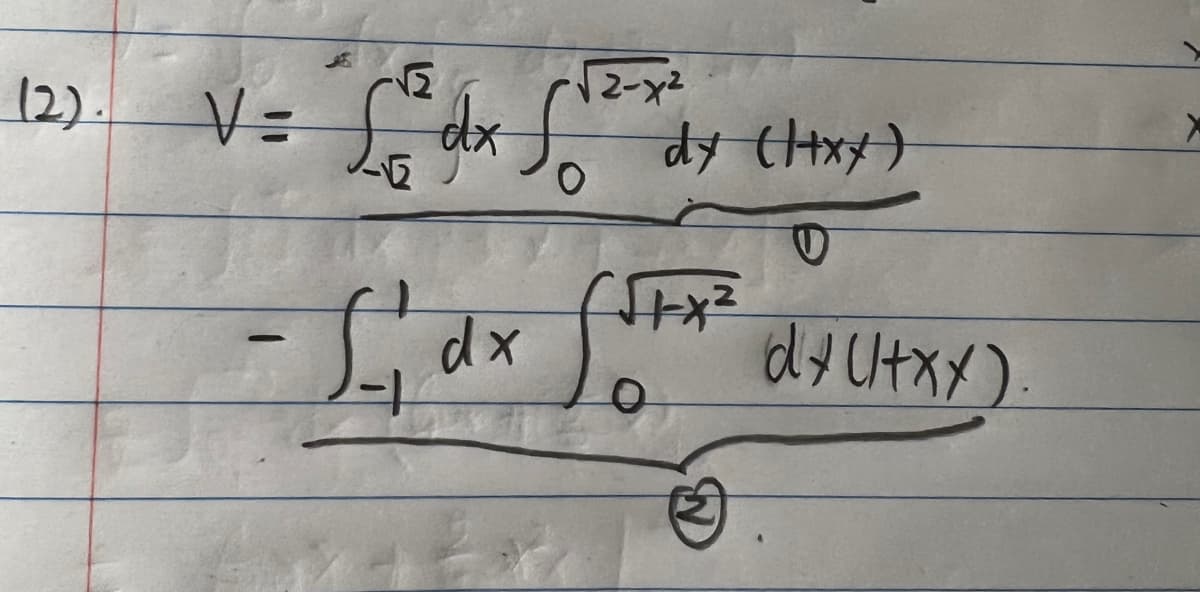 (2). V = ∫_{-√2}^{√2} dx ∫_0^{√(2-x²)} dy (1+xy)
①
- ∫_{-1}^{1} dx ∫_0^{√(1-x²)} dy (1+xy).
②.